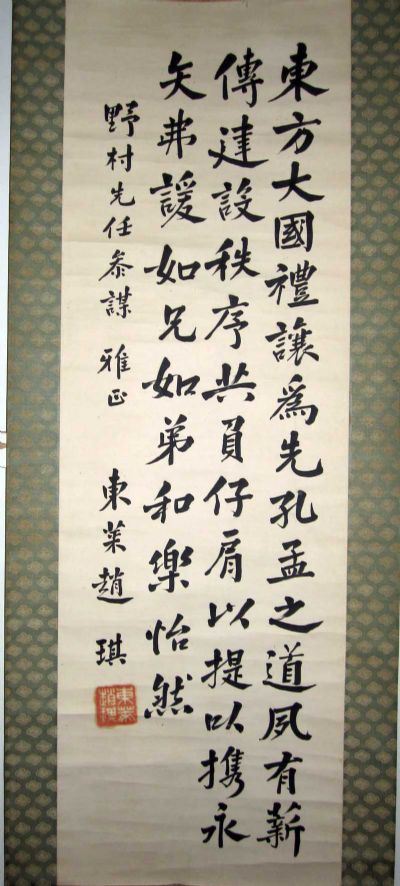 東方大國禮讓為先孔孟之道夙有薪
傳建設秩序共負仔肩以提以携永
矢弗諼如兄如弟和樂怡然
野村先任參謀 雅正
東萊趙琪
東萊趙琪